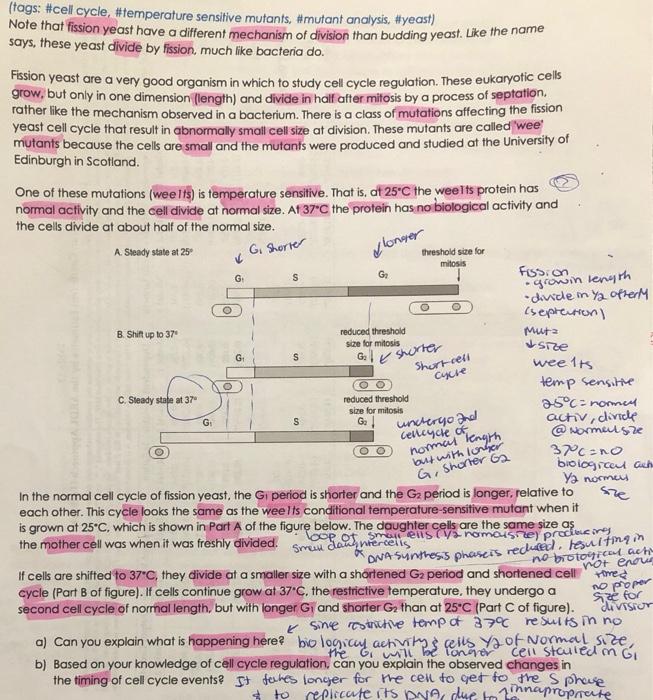 (tags: #cell cycle, #temperature sensitive mutants, #mutant analysis, #yeast)
Note that fission yeast have a different mechanism of division than budding yeast. Like the name
says, these yeast divide by fission, much like bacteria do.
Fission yeast are a very good organism in which to study cell cycle regulation. These eukaryotic cells
grow, but only in one dimension (length) and divide in half after mitosis by a process of septation,
rather like the mechanism observed in a bacterium. There is a class of mutations affecting the fission
yeast cell cycle that result in abnormally small cell size at division. These mutants are called 'wee'
mutants because the cells are small and the mutants were produced and studied at the University of
Edinburgh in Scotland.
One of these mutations (wee1ts) is temperature sensitive. That is, at 25°C the wee1ts protein has
normal activity and the cell divide at normal size. At 37°C the protein has no biological activity and
the cells divide at about half of the normal size.
G1 shorter
longer
A. Steady state at 25°
threshold size for
mitosis
G1 S G2
Fission
• grow in length
• divide in 1/2 after M
(septation)
B. Shift up to 37°
reduced threshold
size for mitosis
G1 S G2
shorter
short cell
cycle
Muta
↓ size
wee 1ts
temp sensitive
C. Steady state at 37°
reduced threshold
size for mitosis
G1 S G2
undergo 2nd
cell cycle of
normal length
but with longer
G1 shorter G2
25°C = normal
activ, divide
@ normal size
37°C = no
biological act
1/2 normal
size
In the normal cell cycle of fission yeast, the G1 period is shorter and the G2 period is longer, relative to
each other. This cycle looks the same as the wee1ts conditional temperature-sensitive mutant when it
is grown at 25°C, which is shown in Part A of the figure below. The daughter cells are the same size as
the mother cell was when it was freshly divided.
loop of small cells (1/2 normal size) producing
small daughter cells
DNA synthesis phase is reduced, resulting in
no biological acti
not enou
time &
no proper
size for
division
If cells are shifted to 37°C, they divide at a smaller size with a shortened G2 period and shortened cell
cycle (Part B of figure). If cells continue grow at 37°C, the restrictive temperature, they undergo a
second cell cycle of normal length, but with longer G1 and shorter G2 than at 25°C (Part C of figure).
since restrictive temp of 37°C results in no
a) Can you explain what is happening here? biological activity & cells 1/2 of Normal size,
the G1 will be longer cell stalled in G1
b) Based on your knowledge of cell cycle regulation, can you explain the observed changes in
the timing of cell cycle events? It takes longer for the cell to get to the S phase
& to replicate its DNA, due to innapropropriate